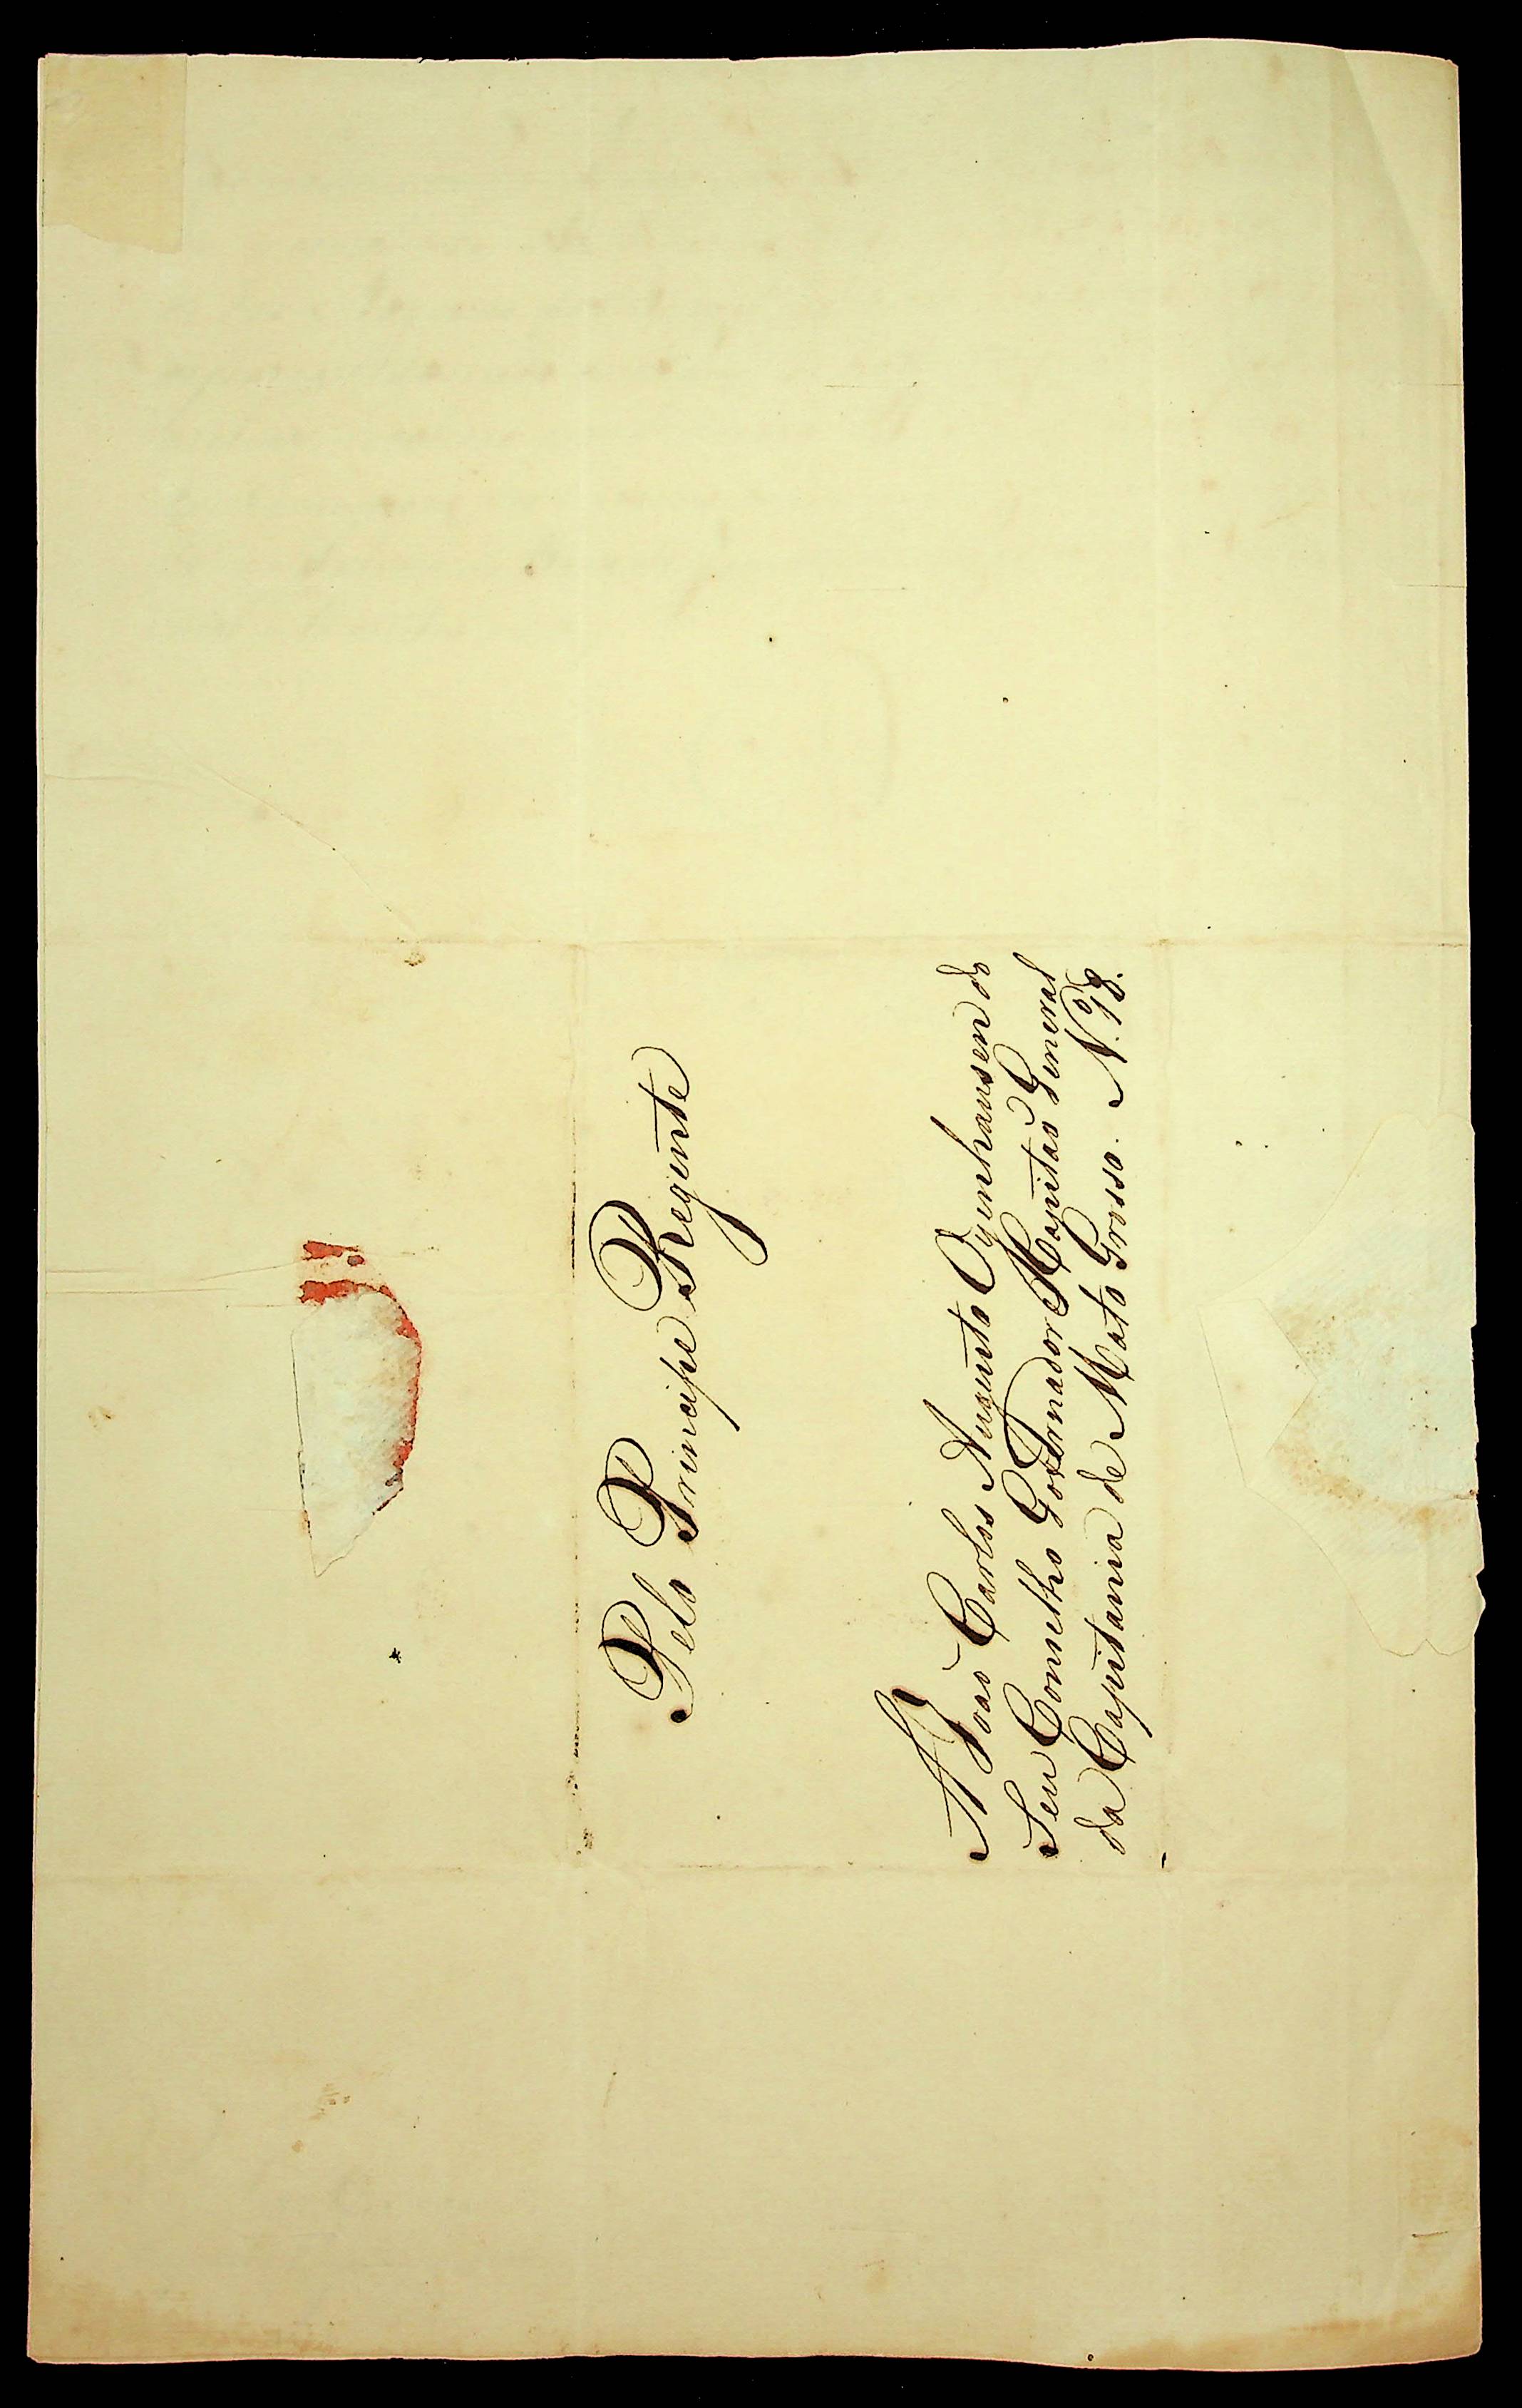 Pelo Principe Regente
A João Carlos Augusto Oyenhausen do
Seu Conselho Governador e Capitaõ General
da Capitania de Mato Grosso. N.º 18.